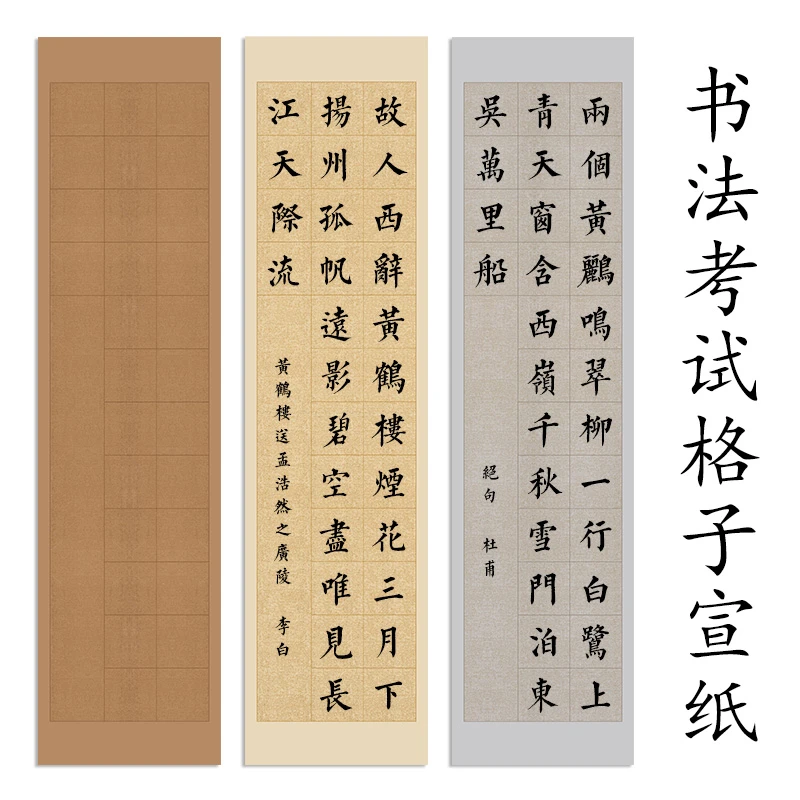 书法考试格子宣纸
兩個黃鸝鳴翠柳一行白鷺上
青天窗含西嶺千秋雪門泊東
吳萬里船
絕句 杜甫
故人西辭黃鶴樓煙花三月下
揚州孤帆遠影碧空盡唯見長
江天際流
黃鶴樓送孟浩然之廣陵 李白